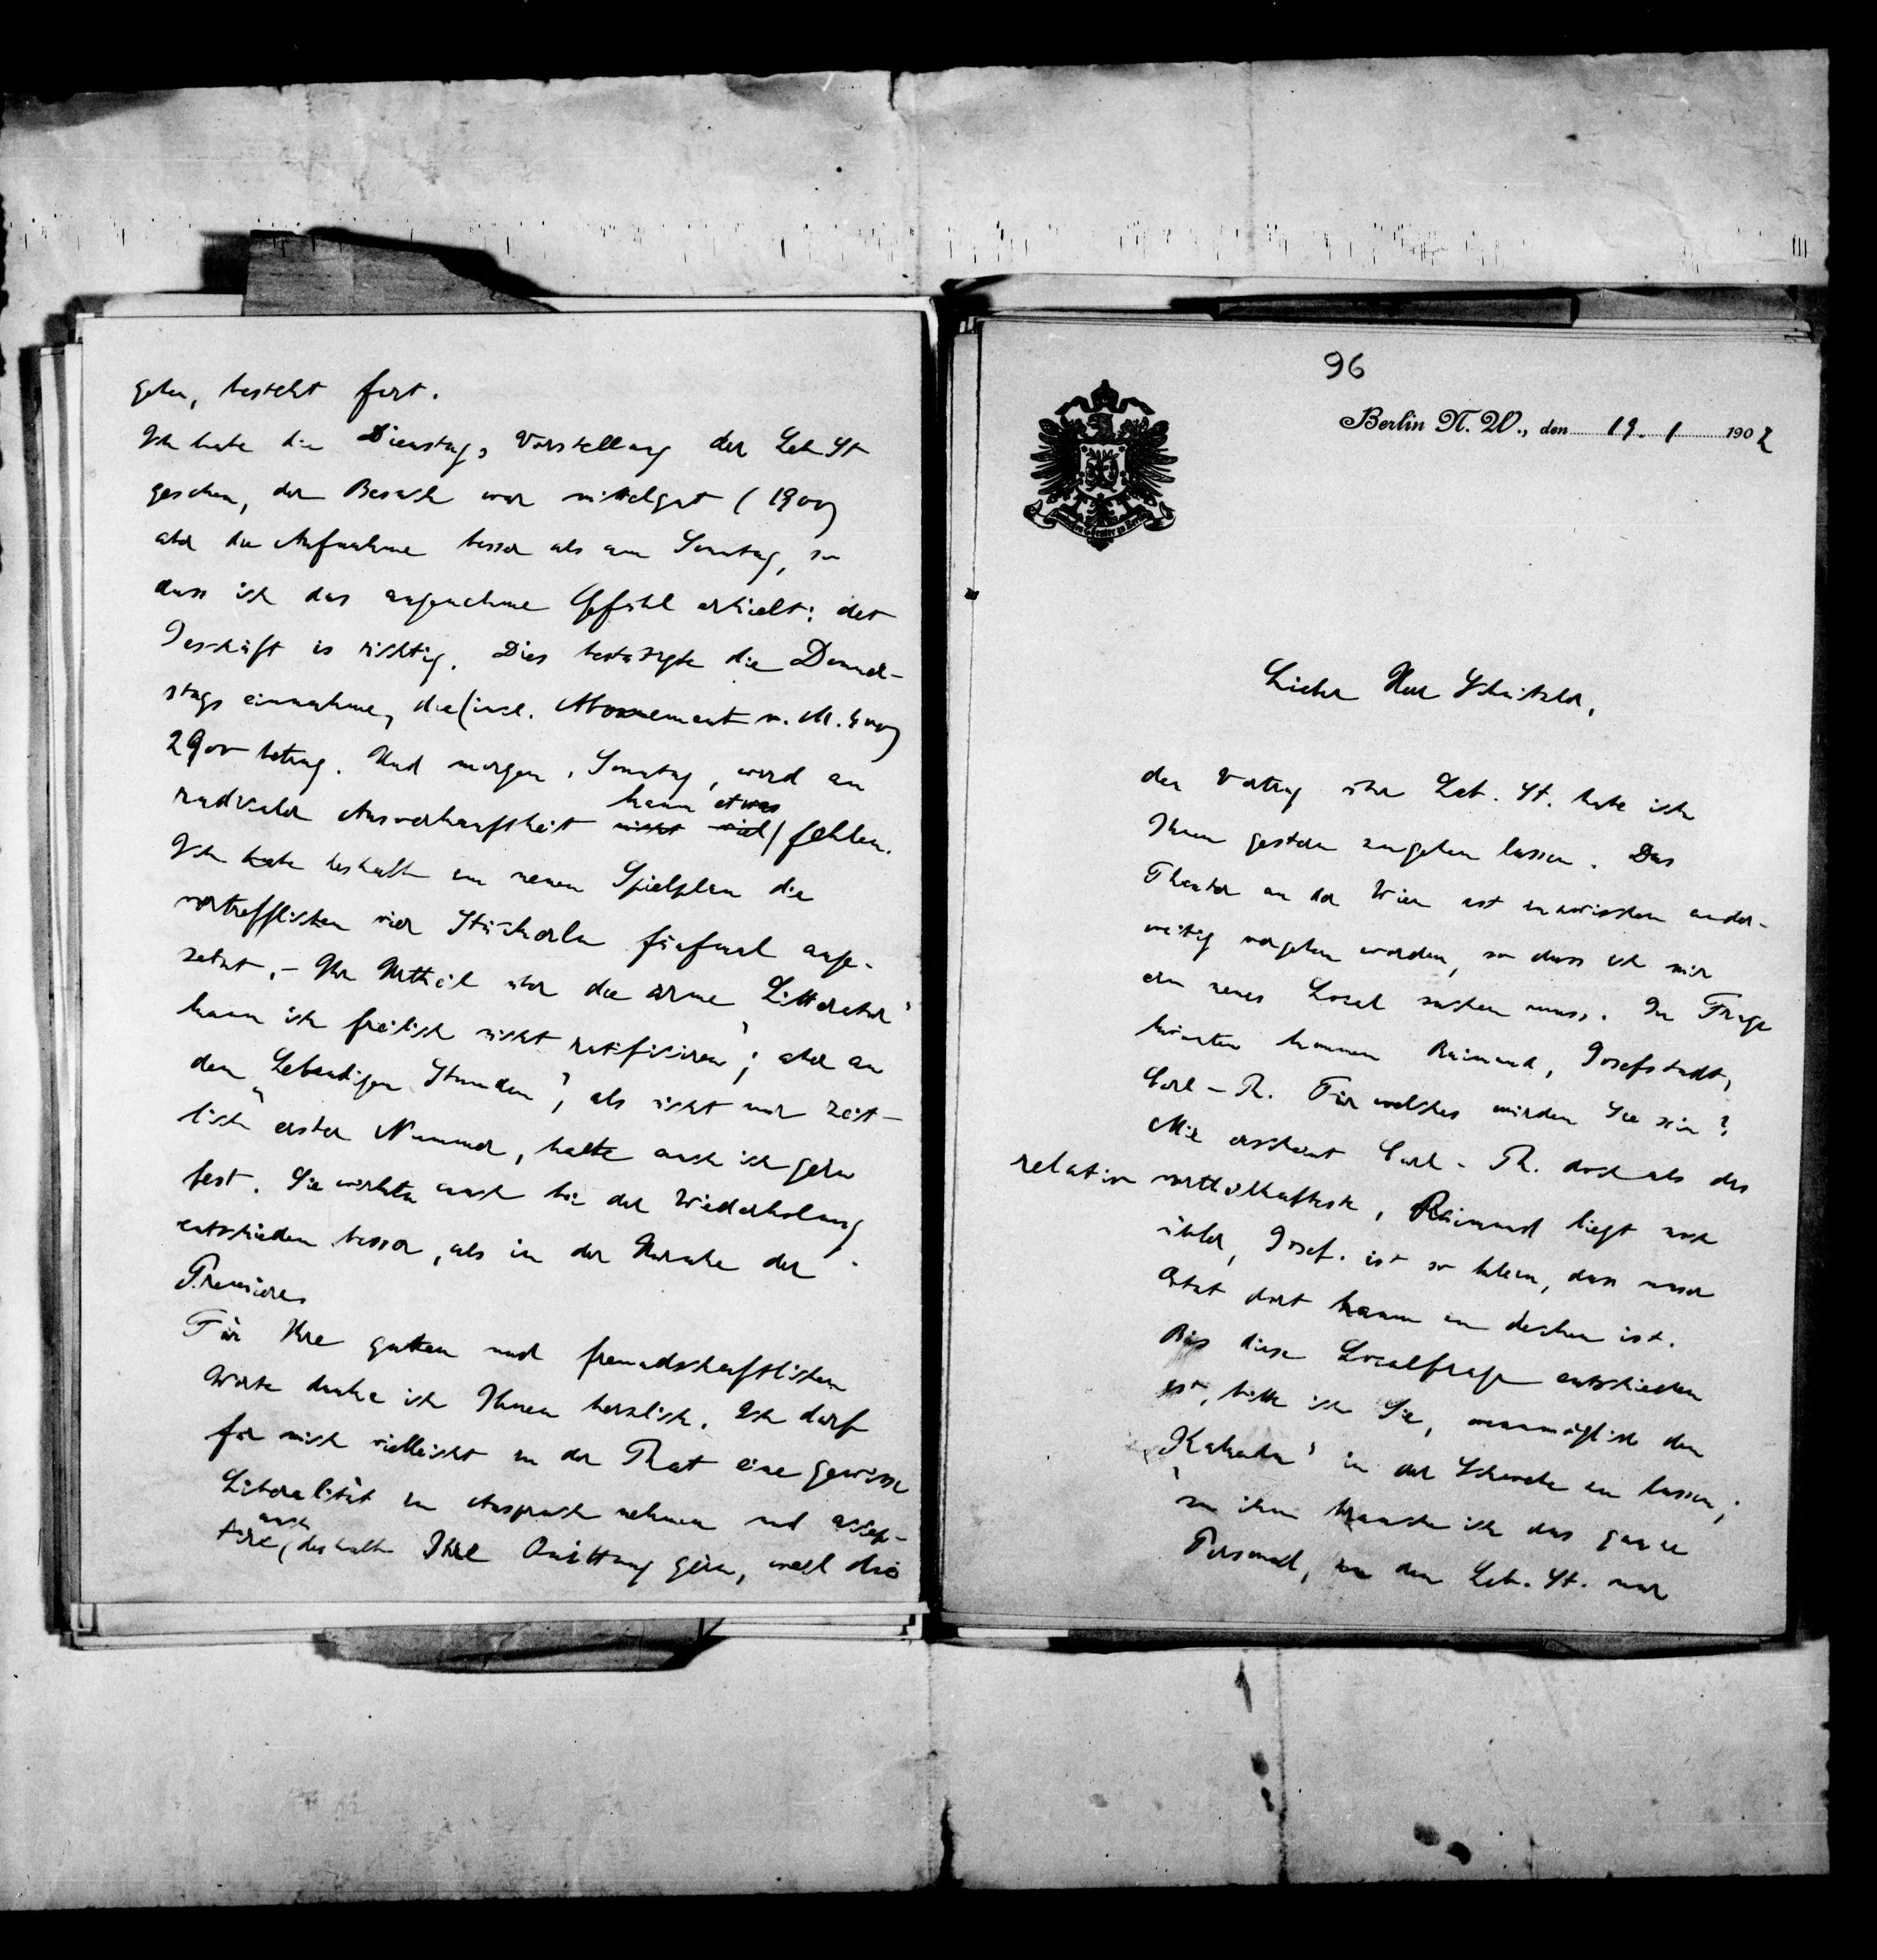 gehen, besteht fort.
Ich habe die Dienstags Vorstellung der Leb St
gesehen, der Besuch war mittelgut (1900)
aber die Aufnahme besser als am Sonntag, so
dass ich das angenehme Gefühl erhielt: det
Jeschäft is richtig. Dies bestätigte die Donner-
stags einnahme, die (incl. Abonnement v. M. 400)
2900 betrug. Und morgen, Sonntag, wird an
radicaler Ausverkauftheit kaum etwas fehlen.
Ich habe deshalb im neuen Spielplan die
vortrefflichen vier Stückerln fünfmal ange-
setzt. – Ihr Urtheil über die arme „Litteratur“
kann ich freilich nicht ratificiren; aber an
den „Lebendigen Stunden“, als nicht nur zeit-
lich erster Nummer, halte auch ich gern
fest. Sie wirkten auch bei der Wiederholung
entschieden besser, als in der Unruhe der
Premiere
Für Ihre guten und freundschaftlichen
Worte danke ich Ihnen herzlich. Ich darf
für mich vielleicht in der That eine gewisse
Liberalität in Anspruch nehmen und accep-
tire auch deshalb Ihre Quittung gern, weil die
96
Berlin N. W., den 19. 1 1902
Deutsches Theater zu Berlin
Lieber Herr Schnitzler,
den Vertrag über Leb. St. habe ich
Ihnen gestern zugehen lassen. Das
Theater an der Wien ist inzwischen ander-
weitig vergeben worden, so dass ich mir
ein neues Local suchen muss. In Frage
könnten kommen Raimund, Josefstadt,
Carl-Th. Für welches würden Sie sein?
Mir erscheint Carl-Th. doch als das
relativ vortheilhafteste, Raimund liegt noch
übler, Josef. ist so klein, dass unser
Etat dort kaum zu decken ist.
Bis diese Localfrage entschieden
ist, bitte ich Sie, womöglich den
„Kakadu“ in der Schwebe zu lassen;
zu ihm brauche ich das ganze
Personal, zu den Leb. St. nur